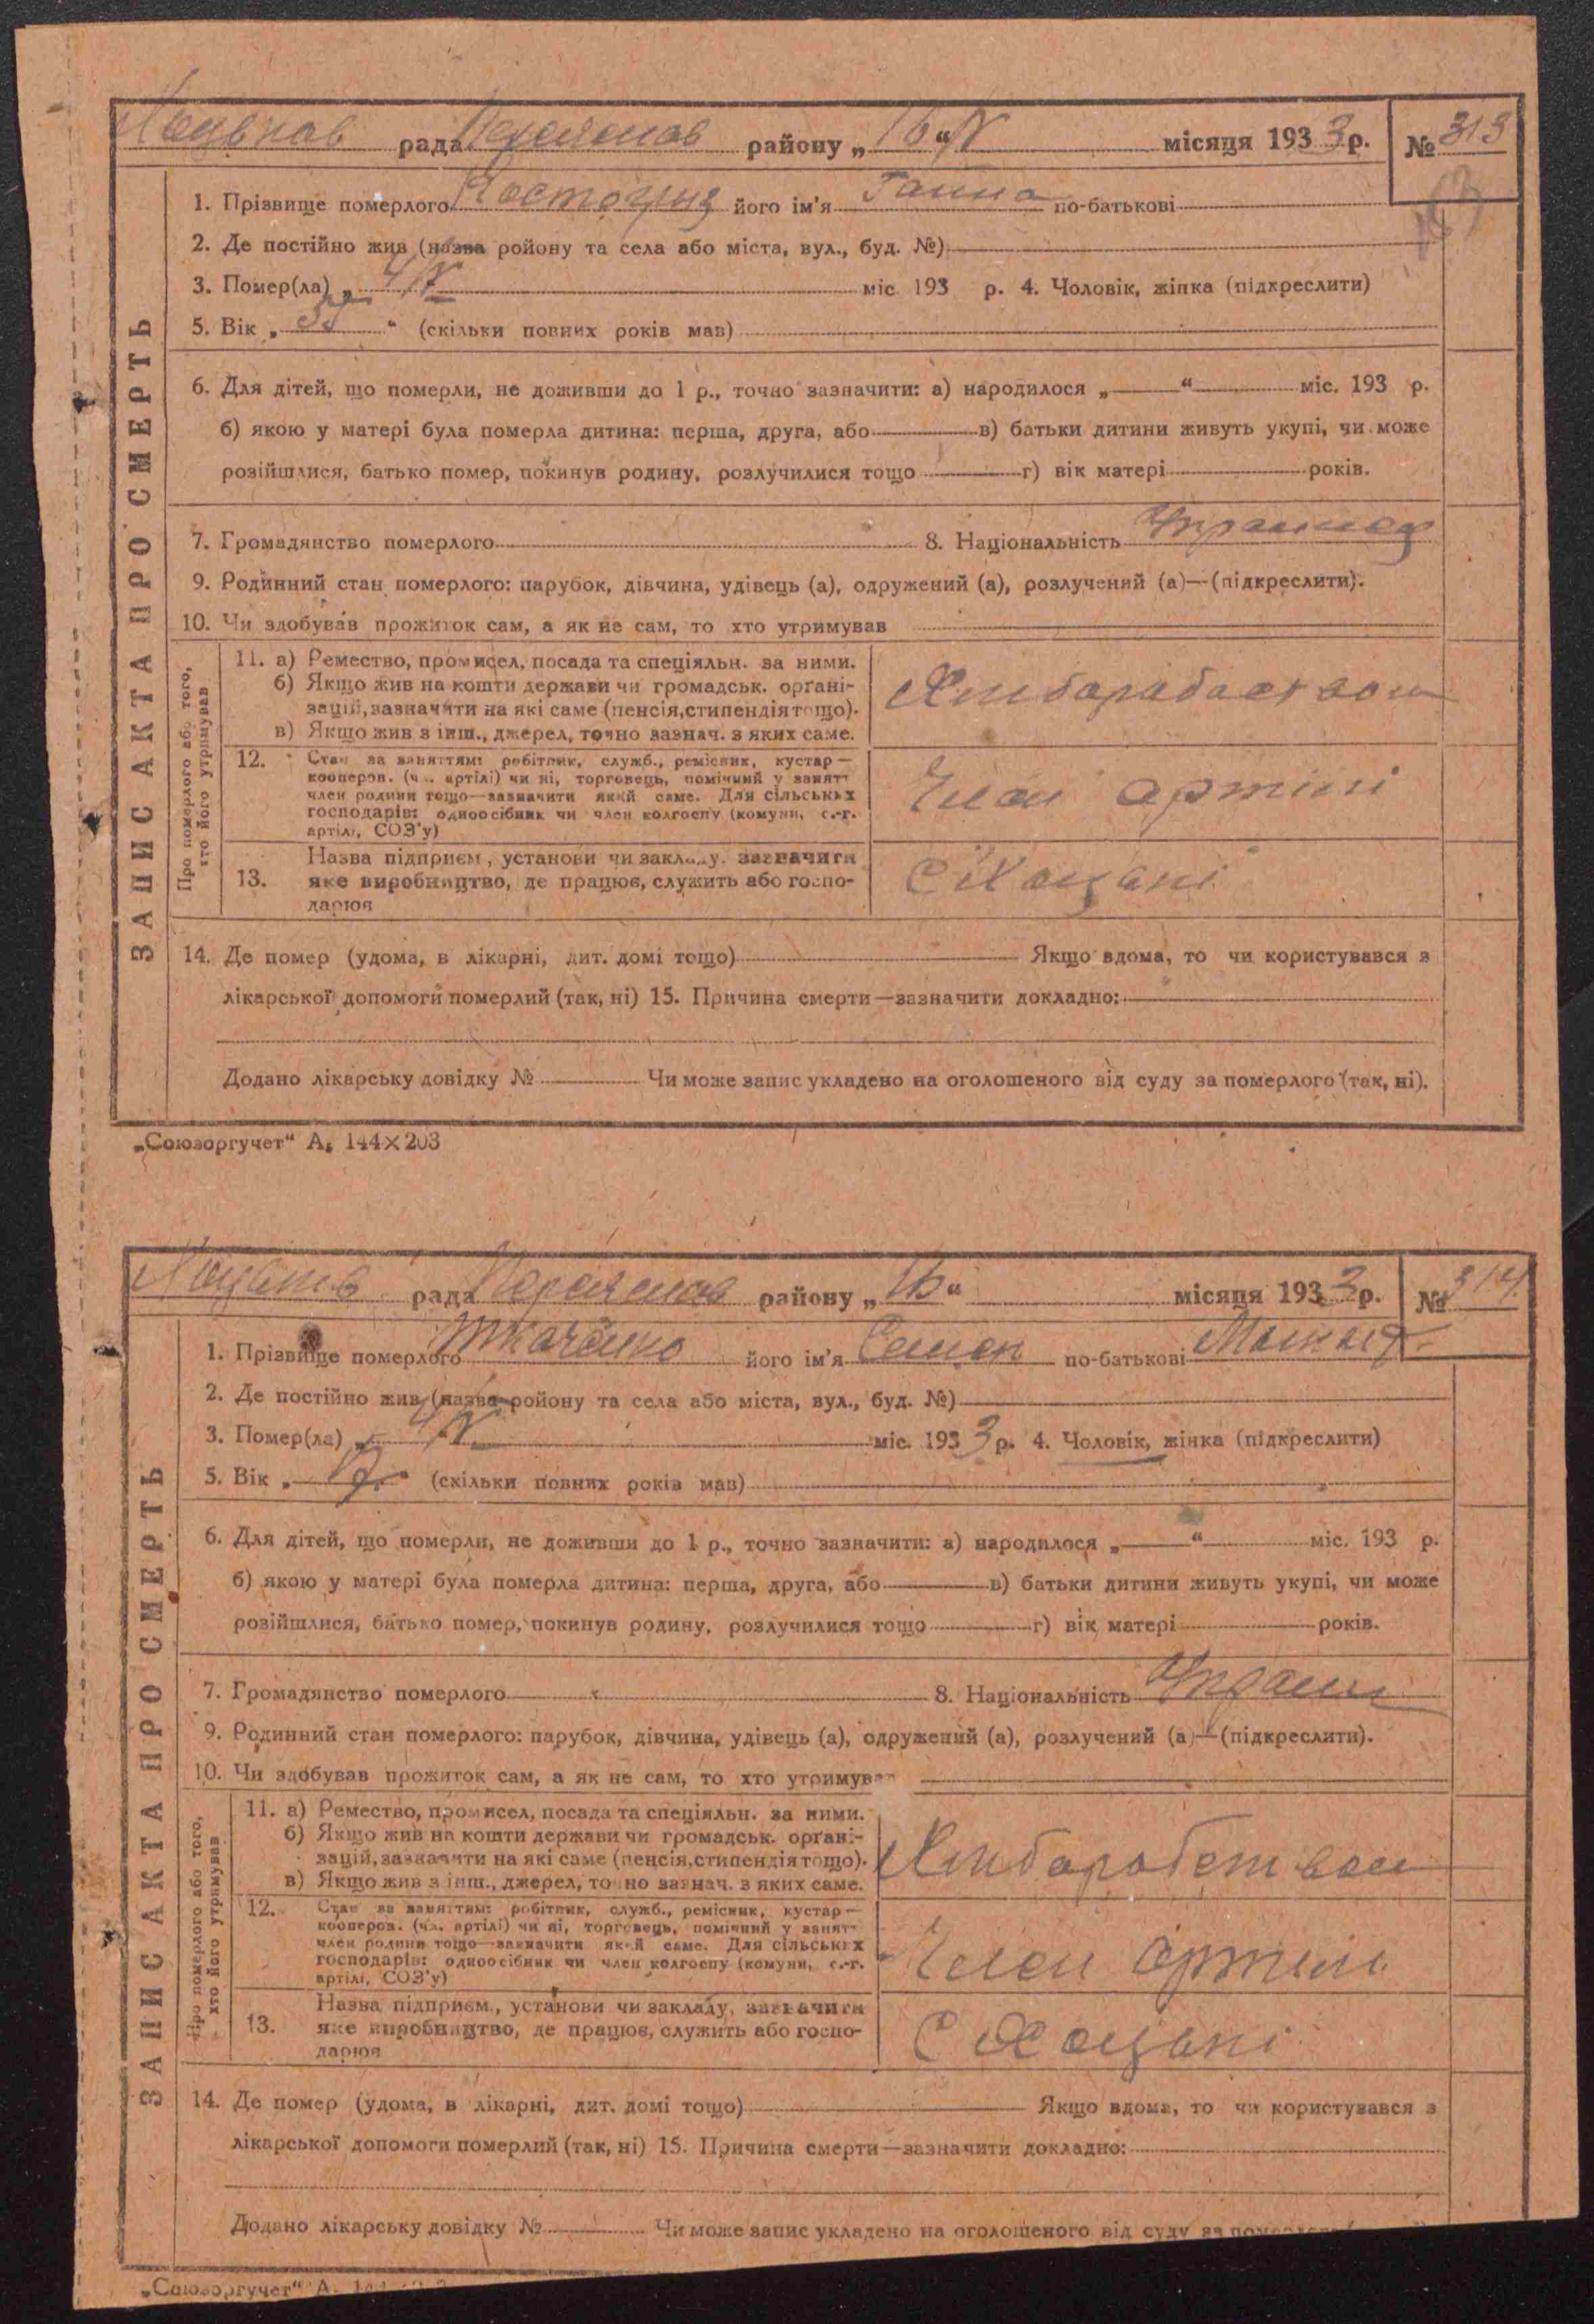 рада Переяслав району „16“ V місяця 1933 р. № 313
1. Прізвище померлого його ім'я Ганна по-батькові
2. Де постійно жив (назва ройону та села або міста, вул., буд. №)
3. Помер(ла) „ 4/V міс 193 р. 4. Чоловік, жінка (підкреслити)
5. Вік „ “ (скільки повних років мав)
6. Для дітей, що померли, не доживши до 1 р., точно зазначити: а) народилося „ “ міс. 193 р.
б) якою у матері була померла дитина: перша, друга, або в) батьки дитини живуть укупі, чи може
розійшлися, батько помер, покинув родину, розлучилися тощо г) вік матері років.
7. Громадянство померлого 8. Національність
9. Родинний стан померлого: парубок, дівчина, удівець (а), одружений (а), розлучений (а)—(підкреслити).
10. Чи здобував прожиток сам, а як не сам, то хто утримував
ЗАПИС АКТА ПРО СМЕРТЬ
Про померлого або того,
хто його утримував
11. а) Ремество, промисел, посада та спеціяльн. за ними.
б) Якщо жив на кошти держави чи громадськ. органі-
зацій, зазначити на які саме (пенсія, стипендія тощо).
в) Якщо жив з інш., джерел, точно зазнач. з яких саме.
12. Стан за заняттям: робітник, служб., ремісник, кустар—
кооперов. (чл. артілі) чи ні, торговець, помічний у занят-
член родини тощо—зазначити який саме. Для сільських
господарів: одноосібник чи член колгоспу (комуни, с.-г.
артілі, СОЗ'у)
Член артілі
Назва підприєм., установи чи закладу, зазначити
13. яке виробництво, де працює, служить або госпо-
дарює
С Хоцьки
14. Де помер (удома, в лікарні, дит. домі тощо) Якщо вдома, то чи користувався з
лікарської допомоги померлий (так, ні) 15. Причина смерти—зазначити докладно:
Додано лікарську довідку № Чи може запис укладено на оголошеного від суду за померлого (так, ні).
„Союзоргучет“ А₅ 144×203
рада Переяслав району „16“ місяця 1933 р. № 314
1. Прізвище померлого Ткаченко його ім'я Семен по-батькові
2. Де постійно жив (назва ройону та села або міста, вул., буд. №)
3. Помер(ла) „ 4/V міс. 193 3 р. 4. Чоловік, жінка (підкреслити)
5. Вік „ “ (скільки повних років мав)
6. Для дітей, що померли, не доживши до 1 р., точно зазначити: а) народилося „ “ міс. 193 р.
б) якою у матері була померла дитина: перша, друга, або в) батьки дитини живуть укупі, чи може
розійшлися, батько помер, покинув родину, розлучилися тощо г) вік матері років.
7. Громадянство померлого 8. Національність
9. Родинний стан померлого: парубок, дівчина, удівець (а), одружений (а), розлучений (а)—(підкреслити).
10. Чи здобував прожиток сам, а як не сам, то хто утримував
ЗАПИС АКТА ПРО СМЕРТЬ
Про померлого або того,
хто його утримував
11. а) Ремество, промисел, посада та спеціяльн. за ними.
б) Якщо жив на кошти держави чи громадськ. органі-
зацій, зазначити на які саме (пенсія, стипендія тощо).
в) Якщо жив з інш., джерел, точно зазнач. з яких саме.
12. Стан за заняттям: робітник, служб., ремісник, кустар—
кооперов. (чл. артілі) чи ні, торговець, помічний у занят-
член родини тощо—зазначити який саме. Для сільських
господарів: одноосібник чи член колгоспу (комуни, с.-г.
артілі, СОЗ'у)
Член артілі
Назва підприєм., установи чи закладу, зазначити
13. яке виробництво, де працює, служить або госпо-
дарює
С Хоцьки
14. Де помер (удома, в лікарні, дит. домі тощо) Якщо вдома, то чи користувався з
лікарської допомоги померлий (так, ні) 15. Причина смерти—зазначити докладно:
Додано лікарську довідку № Чи може запис укладено на оголошеного від суду за
„Союзоргучет“ А